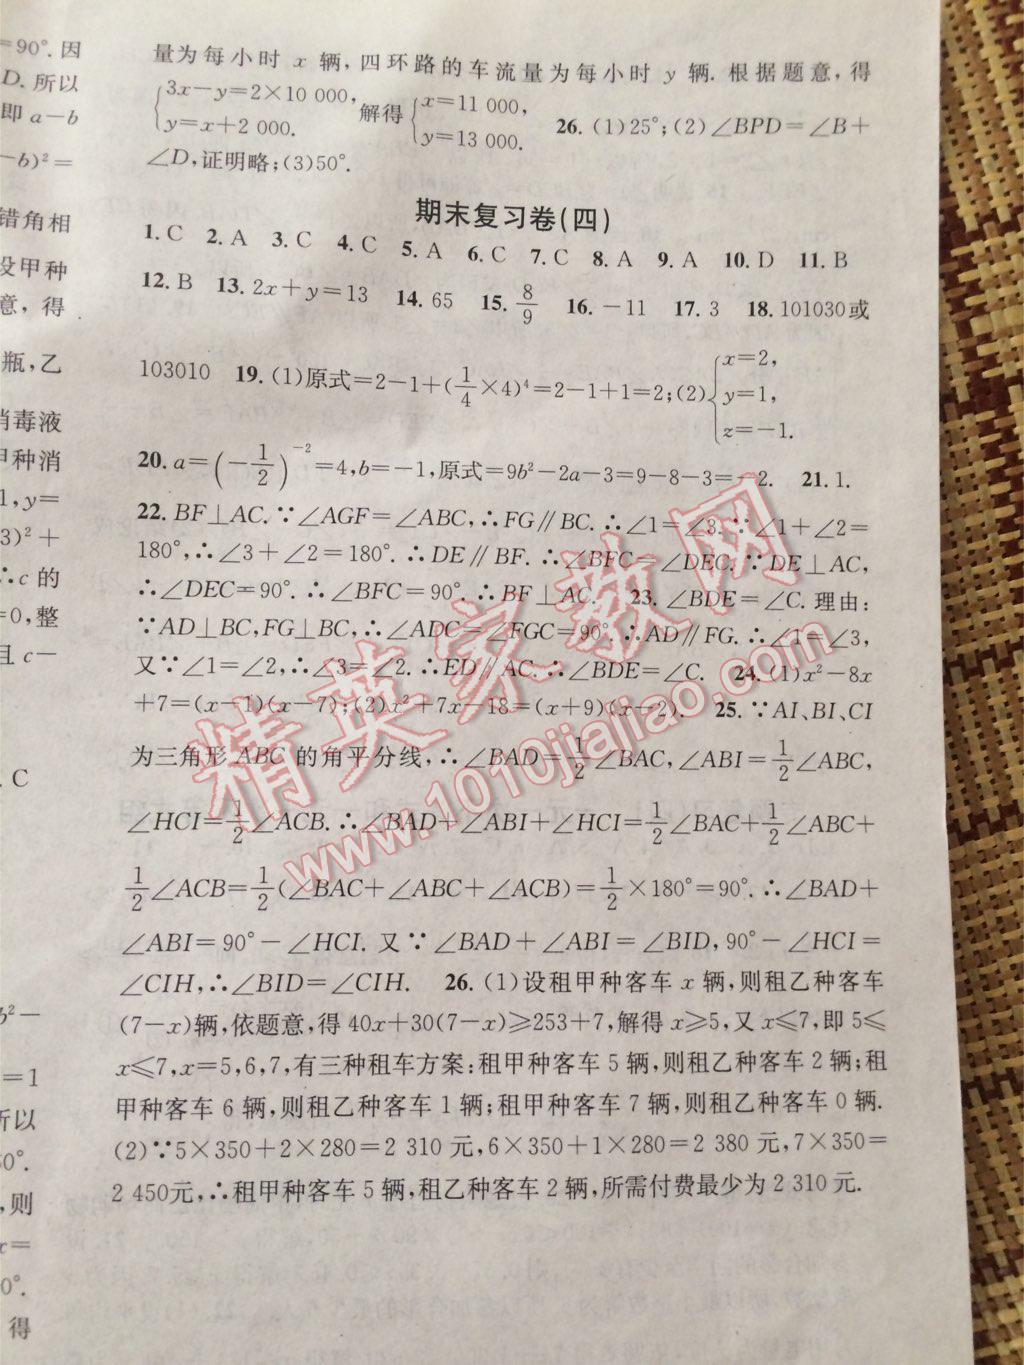 =90°.因
D.所以
即a-b
-b)²=
错角相
设甲种
意,得
瓶,乙
消毒液
甲种消
1,y=
3)²+
∴c的
=0,整
且c-
.C
b²-
=1
所以
0°.
,则
x=
0°.
得
量为每小时 x 辆,四环路的车流量为每小时 y 辆.根据题意,得
{3x-y=2×10 000, y=x+2 000. 解得{x=11 000, y=13 000. 26.(1)25°;(2)∠BPD=∠B+
∠D,证明略;(3)50°.
期末复习卷(四)
1.C 2.A 3.C 4.C 5.A 6.C 7.C 8.A 9.A 10.D 11.B
12.B 13.2x+y=13 14.65 15.8/9 16.-11 17.3 18.101030或
103010 19.(1)原式=2-1+(1/4×4)⁴=2-1+1=2;(2){x=2, y=1, z=-1.
20.a=(-1/2)⁻²=4,b=-1,原式=9b²-2a-3=9-8-3=-2. 21.1.
22.BF⊥AC.∵∠AGF=∠ABC,∴FG∥BC.∴∠1=∠3.∵∠1+∠2=
180°,∴∠3+∠2=180°.∴DE∥BF.∴∠BFC=∠DEC.∵DE⊥AC,
∴∠DEC=90°.∴∠BFC=90°.∴BF⊥AC. 23.∠BDE=∠C.理由:
∵AD⊥BC,FG⊥BC,∴∠ADC=∠FGC=90°.∴AD∥FG.∴∠1=∠3,
又∵∠1=∠2,∴∠3=∠2.∴ED∥AC.∴∠BDE=∠C. 24.(1)x²-8x
+7=(x-1)(x-7);(2)x²+7x-18=(x+9)(x-2). 25.∵AI、BI、CI
为三角形ABC的角平分线,∴∠BAD=1/2∠BAC,∠ABI=1/2∠ABC,
∠HCI=1/2∠ACB.∴∠BAD+∠ABI+∠HCI=1/2∠BAC+1/2∠ABC+
1/2∠ACB=1/2(∠BAC+∠ABC+∠ACB)=1/2×180°=90°.∴∠BAD+
∠ABI=90°-∠HCI.又∵∠BAD+∠ABI=∠BID,90°-∠HCI=
∠CIH,∴∠BID=∠CIH. 26.(1)设租甲种客车 x 辆,则租乙种客车
(7-x)辆,依题意,得 40x+30(7-x)≥253+7,解得 x≥5,又 x≤7,即 5≤
x≤7,x=5,6,7,有三种租车方案:租甲种客车 5 辆,则租乙种客车 2 辆;租
甲种客车 6 辆,则租乙种客车 1 辆;租甲种客车 7 辆,则租乙种客车 0 辆.
(2)∵5×350+2×280=2 310 元,6×350+1×280=2 380 元,7×350=
2 450元,∴租甲种客车 5 辆,租乙种客车 2 辆,所需付费最少为 2 310 元.
精英家教网
www.1010jiajiao.com